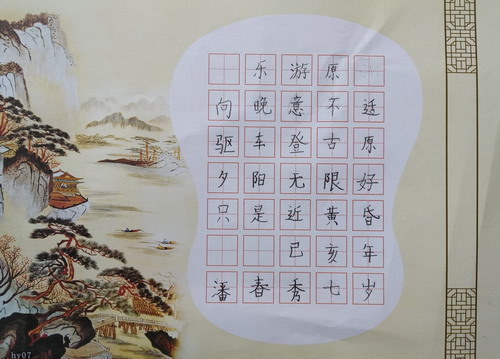 乐游原
向晚意不适
驱车登古原
夕阳无限好
只是近黄昏
己亥年
潘春秀七岁
hy07